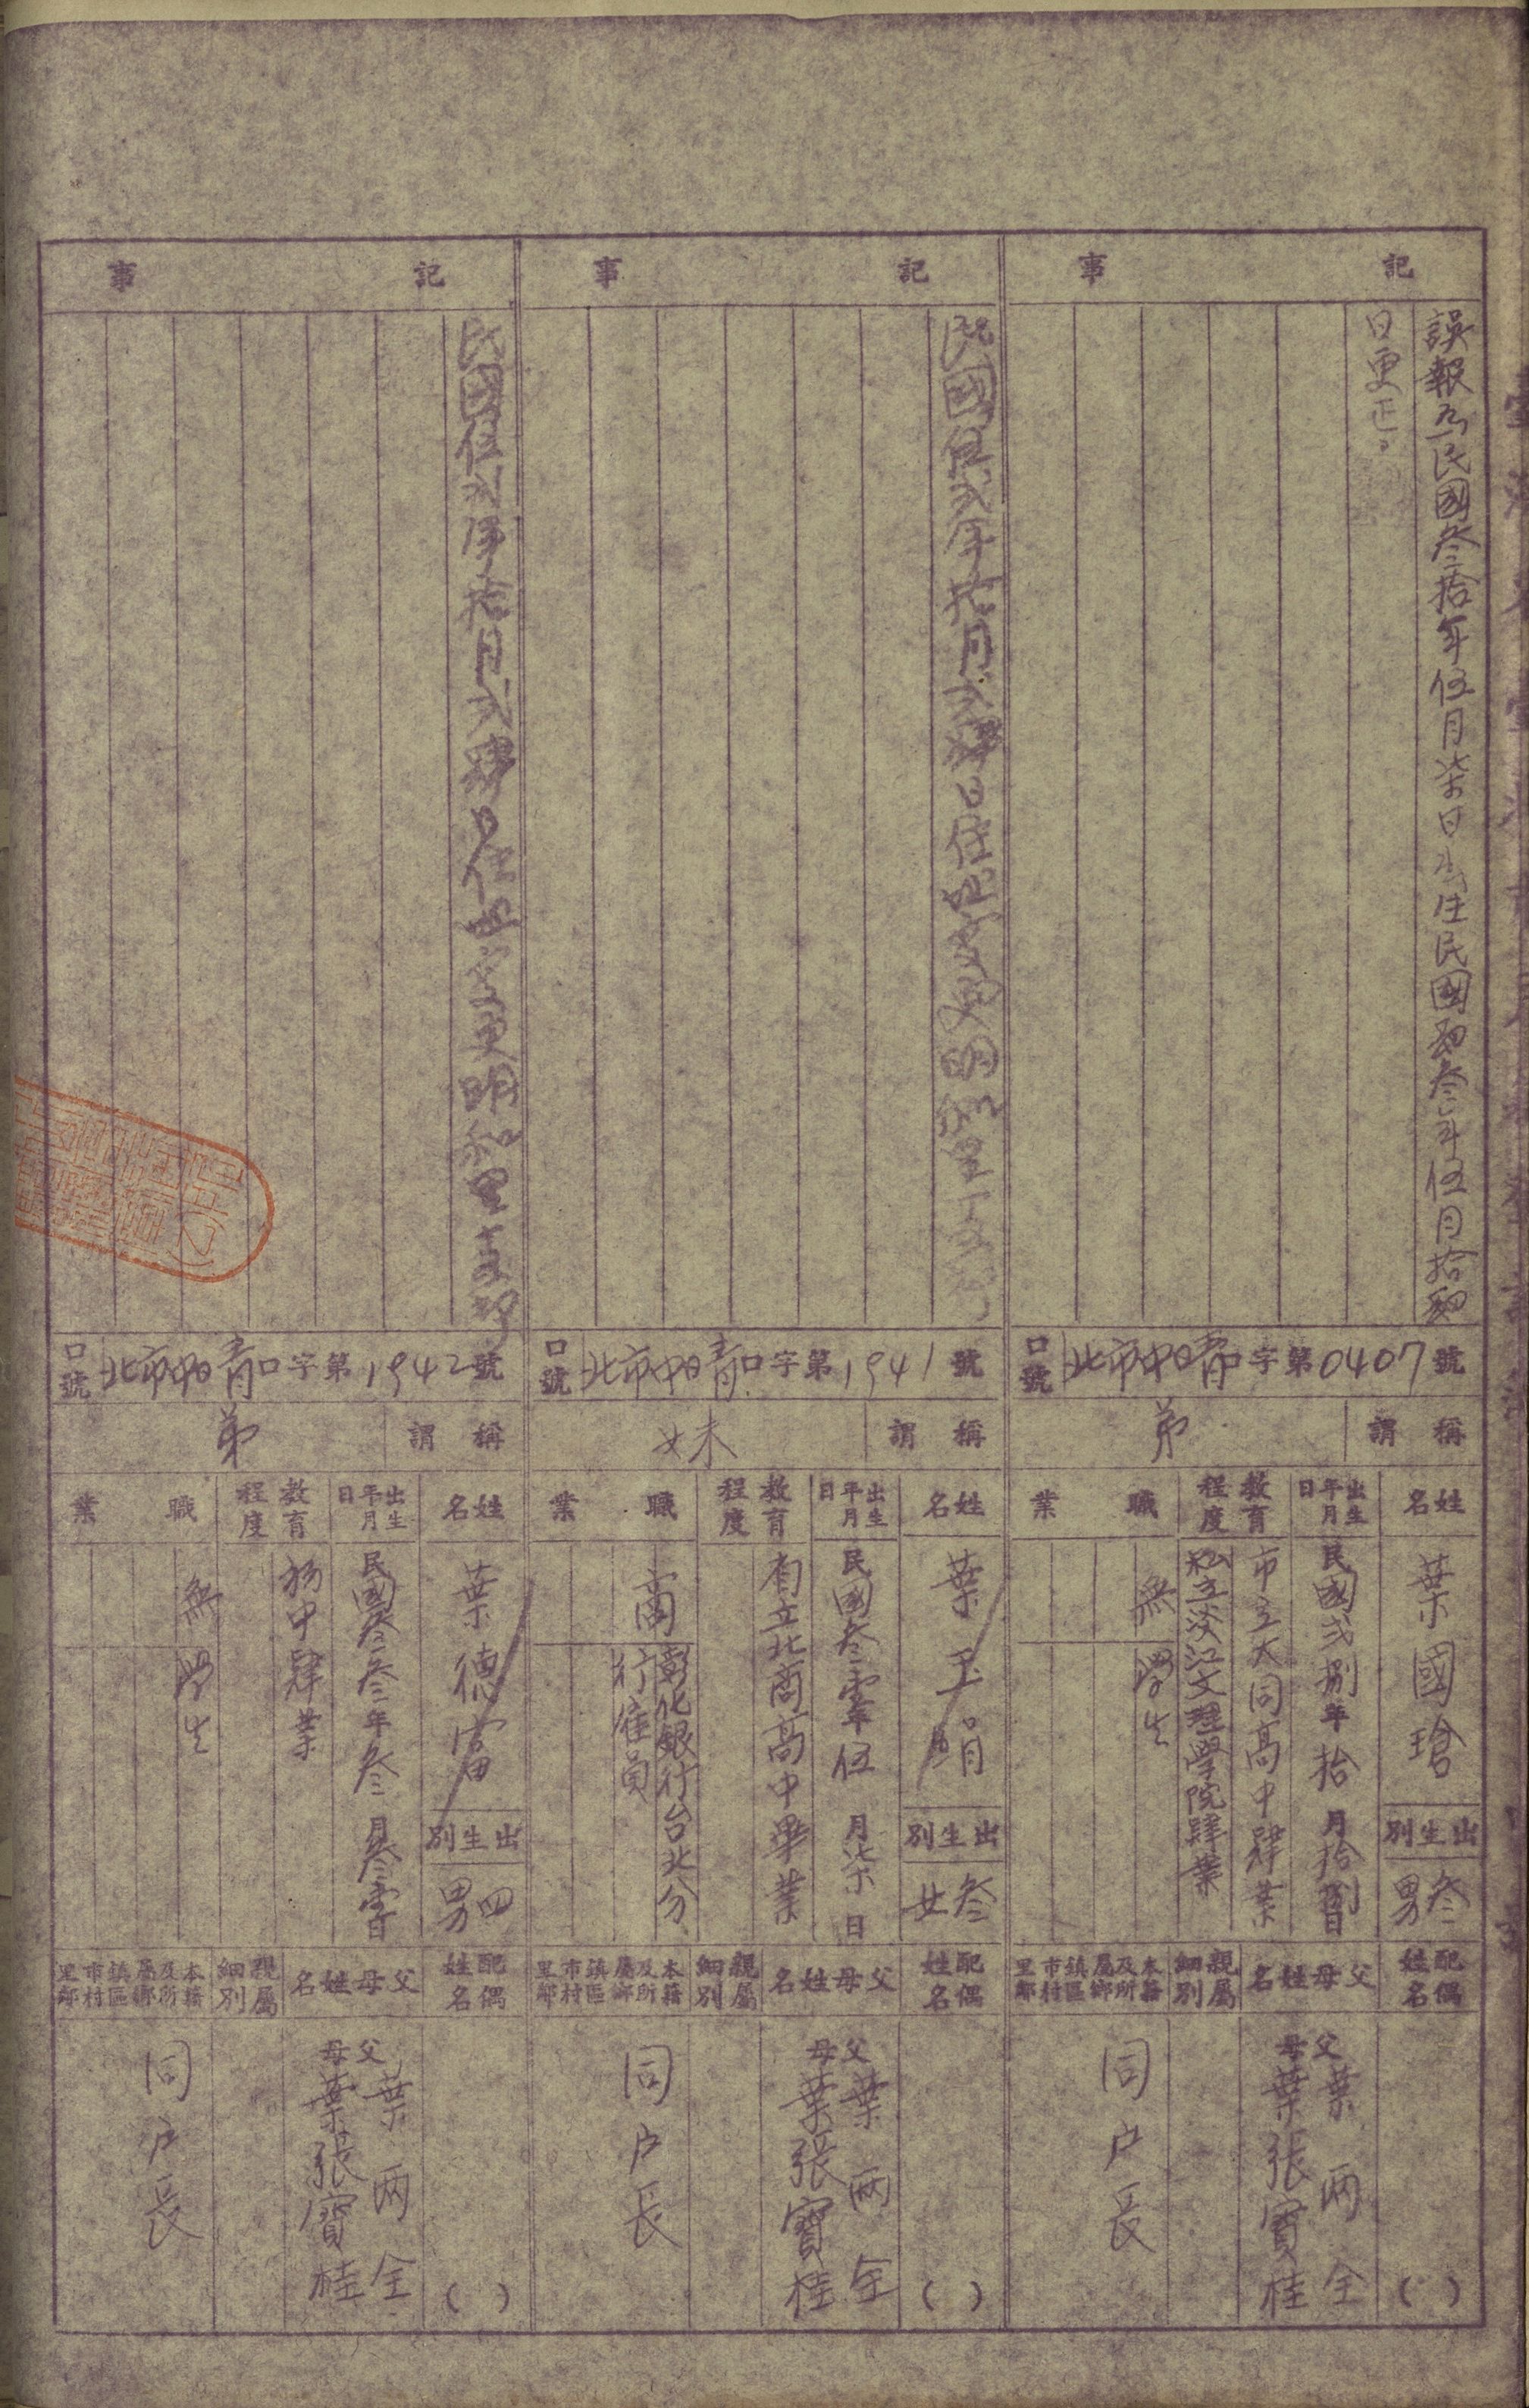 記事
誤報為民國叁拾年伍月柒日出生民國肆叁年伍月拾肆
日更正
口號 北市中日青口字第0407號
稱謂 弟
姓名 葉國瑲
出生別 叁男
出生年月日 民國弍捌年拾月拾捌日
教育程度 市立大同高中肄業
私立淡江文理學院肄業
職業 無 學生
配偶姓名 ( )
父母姓名 父 葉兩全
母 葉張寶桂
親屬細別
本籍及所屬鄉鎮區市村里鄰 同户長
記事
民國伍弍年拾月弍肆日住址變更明知里
口號 北市中日青口字第1941號
稱謂 妹
姓名 葉玉娟
出生別 叁女
出生年月日 民國叁零年伍月柒日
教育程度 省立北商高中畢業
職業 商 彰化銀行台北分
行雇員
配偶姓名 ( )
父母姓名 父 葉兩全
母 葉張寶桂
親屬細別
本籍及所屬鄉鎮區市村里鄰 同户長
記事
民國伍弍年拾月弍肆日住址變更明知里
口號 北市中日青口字第1942號
稱謂 弟
姓名 葉德富
出生別 四男
出生年月日 民國叁叁年叁月叁零日
教育程度 初中肄業
職業 無 學生
配偶姓名 ( )
父母姓名 父 葉兩全
母 葉張寶桂
親屬細別
本籍及所屬鄉鎮區市村里鄰 同户長